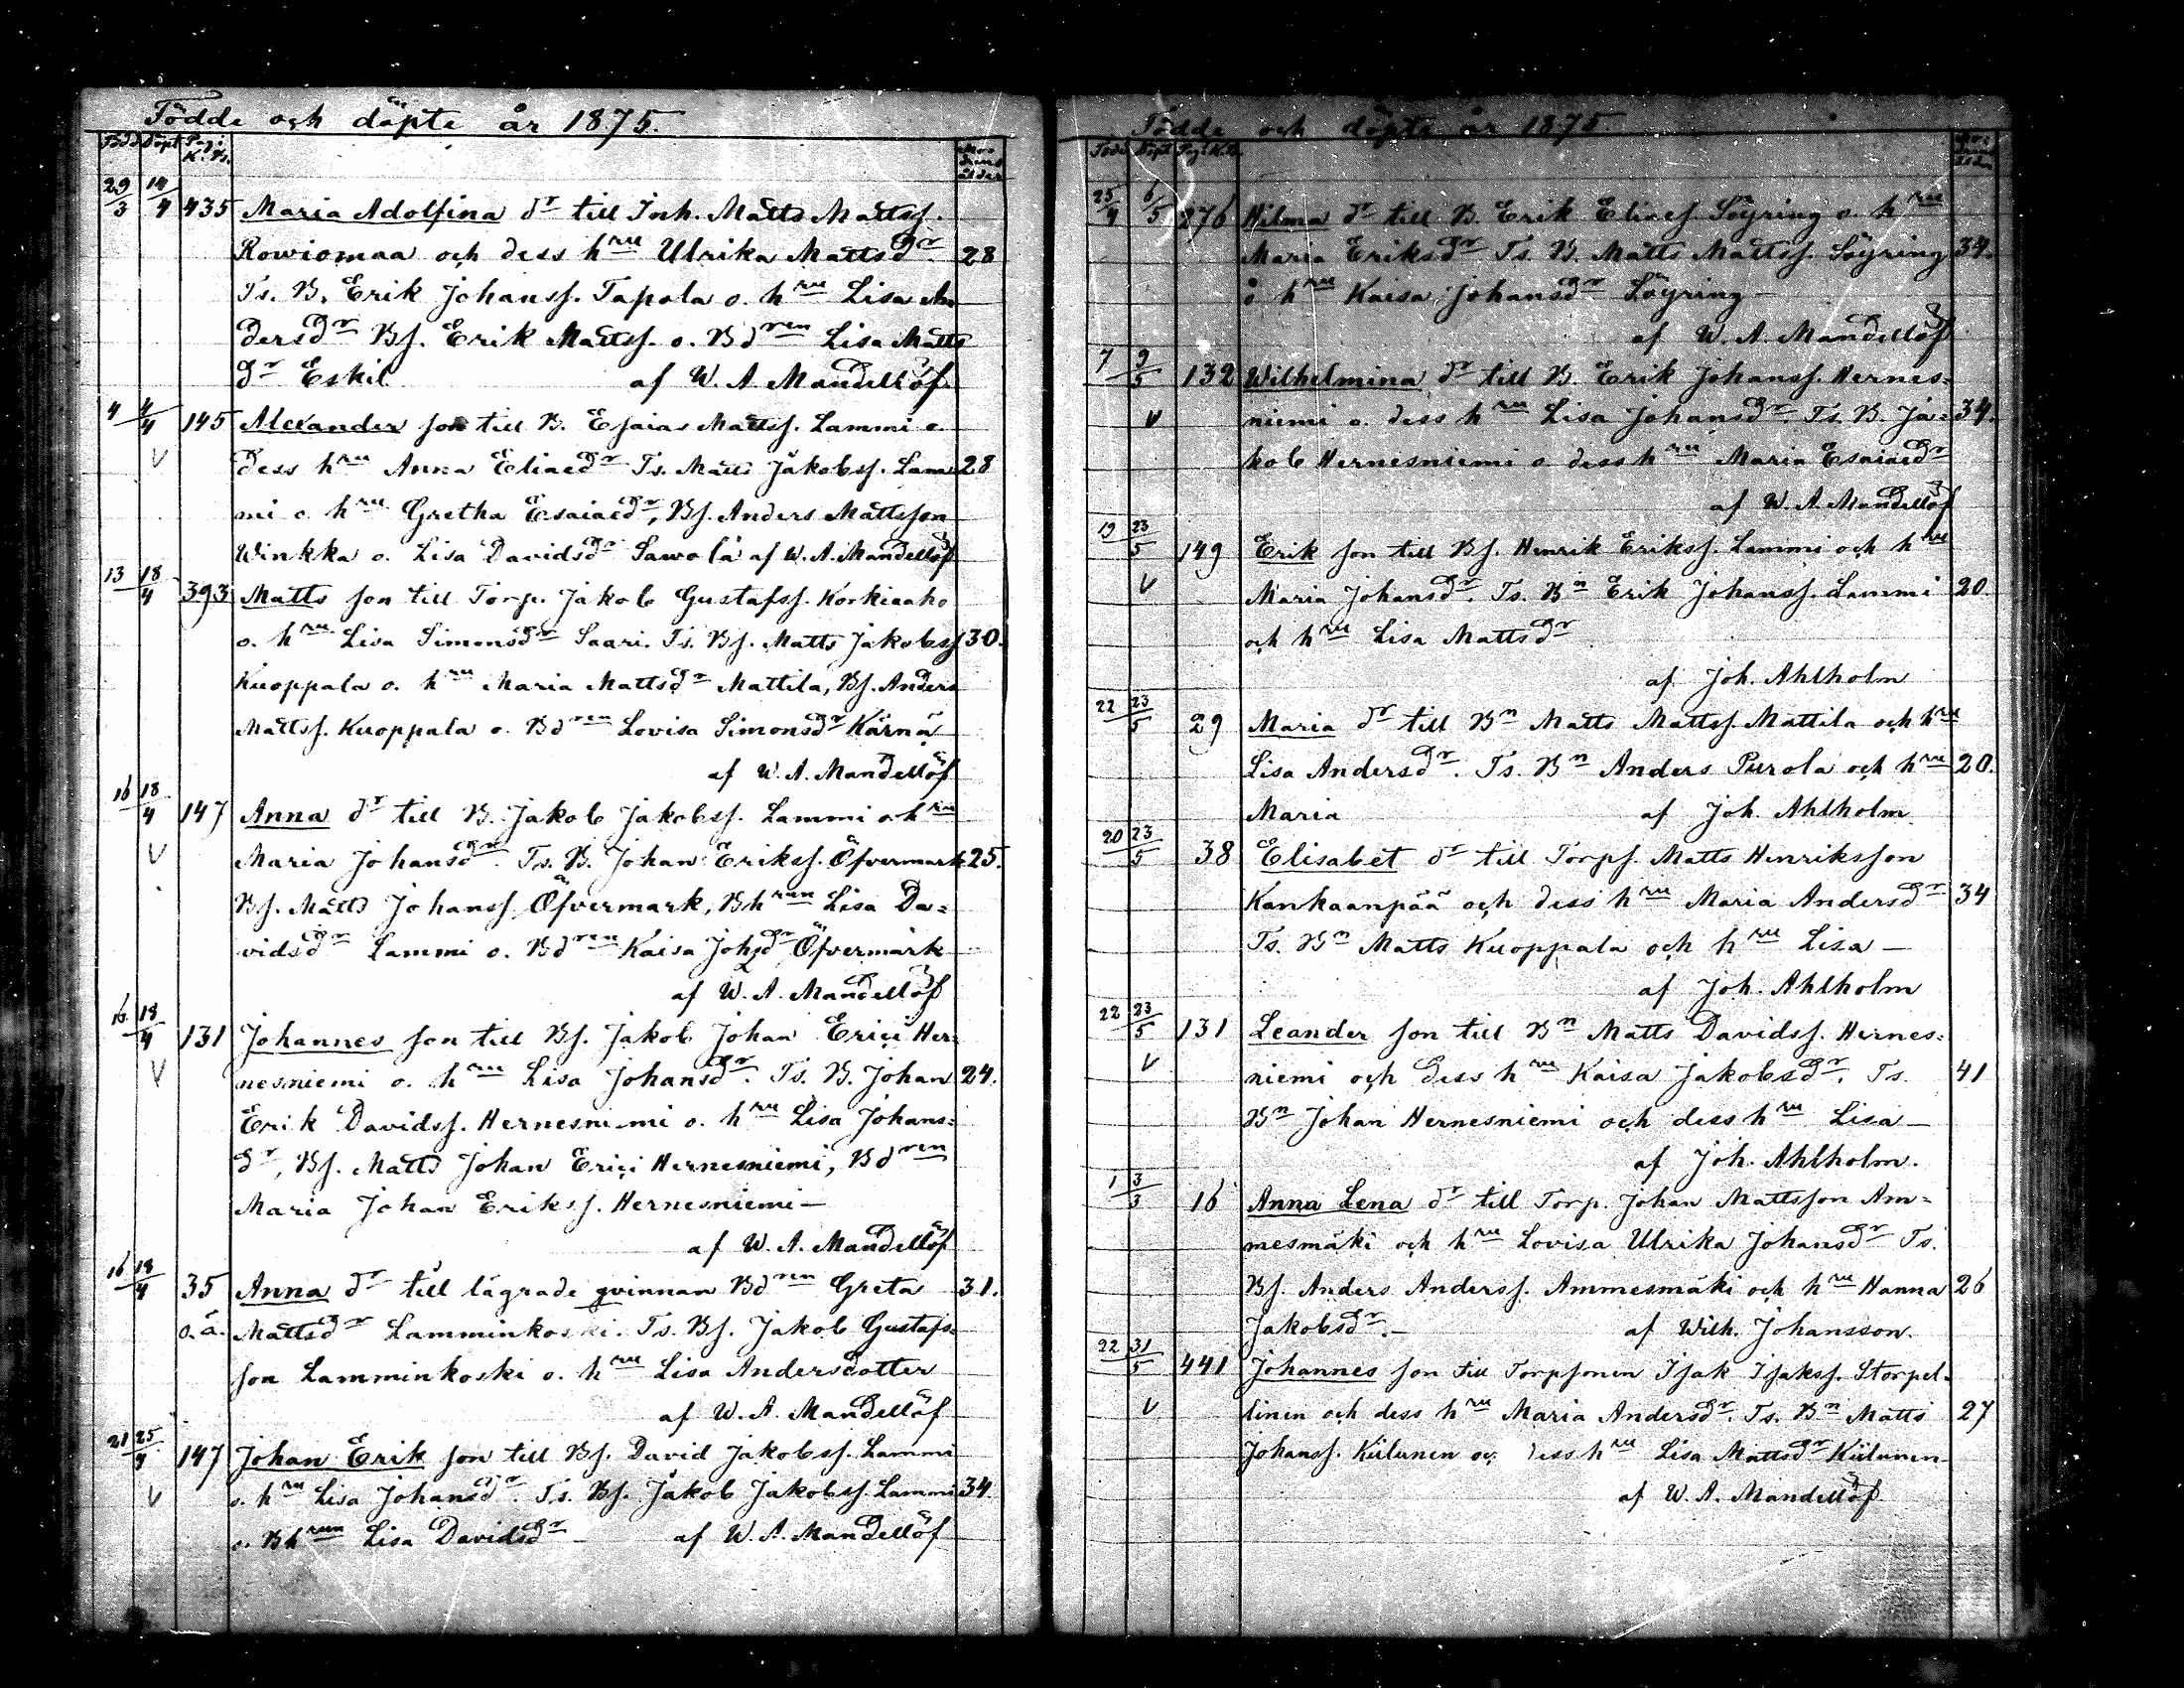 Födde och döpte år 1875.
Född Döpt Pag. i K. B. Modrens ålder
29/3 14/4 435 Maria Adolfina dr till Inh. Matts Mattss.
Rowiomaa och dess hru Ulrika Mattsdr 28
Ts. B. Erik Johanss. Tapola o. hru Lisa An
dersdr Bs. Erik Mattss. o. Bdren Lisa Matts
dr Eskil af W. A. Mandellöf
4 4/4 145 Alexander son till B. Esaias Mattss. Lammi o.
V dess hru Anna Eliaedr Ts. Matts Jakobss. Lam 28
mi o. hru Gretha Esaiaedr, Bs. Anders Mattsson
Winkka o. Lisa Davidsdr Sawola af W. A. Mandellöf
13 18/4 393 Matts son till Torp. Jakob Gustafss. Korkiaaho
o. hru Lisa Simonsdr Saari. Ts. Bs. Matts Jakobss 30.
Kuoppala o. hru Maria Mattsdr Mattila, Bs. Anders
Mattss. Kuoppala o. Bdren Lovisa Simonsdr Kärnä
af W. A. Mandellöf
16 18/4 147 Anna dr till B. Jakob Jakobss. Lammi o. hru
V Maria Johansdr. Ts. B. Johan Erikss. Öfvermark 25.
Bs. Matts Johanss Öfvermark, Bhrun Lisa Da=
vidsdr Lammi o. Bdren Kaisa Johsdr Öfvermark
af W. A. Mandellöf
16 18/4 131 Johannes son till Bs. Jakob Johan Erici Her=
V nesniemi o. hru Lisa Johansdr. Ts. B. Johan 24.
Erik Davidss. Hernesniemi o. hru Lisa Johans=
dr, Bs. Matts Johan Erici Hernesniemi, Bdren
Maria Johan Erikss. Hernesniemi—
af W. A. Mandellöf
16 18/4 35 Anna dr till lägrade qvinnan Bdren Greta 31.
o.ä. Mattsdr Lamminkoski. Ts. Bs. Jakob Gustafs=
son Lamminkoski o. hru Lisa Andersdotter
af W. A. Mandellöf
21 25/4 147 Johan Erik son till Bs. David Jakobss. Lammi
V o. hru Lisa Johansdr. Ts. Bs. Jakob Jakobss. Lammi 34.
o. Bhrun Lisa Davidsdr— af W. A. Mandellöf
Födde och döpte år 1875
Född Döpt Pag. i K. B. Modrens ålder
25/4 6/5 276 Hilma dr till B. Erik Eliaes. Löyring o. hru
Maria Eriksdr Ts. B. Matts Mattss. Löyring 34.
o hru Kaisa Johansdr Löyring—
af W. A. Mandellöf
7 9/5 132 Wilhelmina dr till B. Erik Johanss. Hernes=
V niemi o. dess hru Lisa Johansdr. Ts. B. Ja= 34.
kob Hernesniemi o dess hru Maria Esaiaedr
af W. A. Mandellöf
19 23/5 149 Erik son till Bs. Henrik Erikss. Lammi och hru
V Maria Johansdr. Ts. Bn Erik Johanss. Lammi 20.
och hru Lisa Mattsdr
af Joh. Ahlholm
22 23/5 29 Maria dr till Bn Matts Mattss. Mattila och hru
Lisa Andersdr. Ts. Bn Anders Purola och hru 20.
Maria af Joh. Ahlholm
20 23/5 38 Elisabet dr till Torps. Matts Henriksson
Kankaanpää och dess hru Maria Andersdr 34
Ts. Bn Matts Kuoppala och hru Lisa—
af Joh. Ahlholm
22 23/5 131 Leander son till Bn Matts Davidss. Hernes=
V niemi och dess hru Kaisa Jakobsdr. Ts. 41
Bn Johan Hernesniemi och dess hru Lisa—
af Joh. Ahlholm.
1 3/3 16 Anna Lena dr till Torp. Johan Mattsson Am=
mesmäki och hru Lovisa Ulrika Johansdr Ts.
Bs. Anders Anderss. Ammesmäki och hru Hanna 26
Jakobsdr.— af Wilh. Johansson.
22 31/5 441 Johannes son till Torpsonen Isak Isakss. Storpel=
V linen och dess hru Maria Andersdr. Ts. Bn Matts 27
Johanss. Kiilunen oc dess hru Lisa Mattsdr Kiilunen
af W. A. Mandellöf